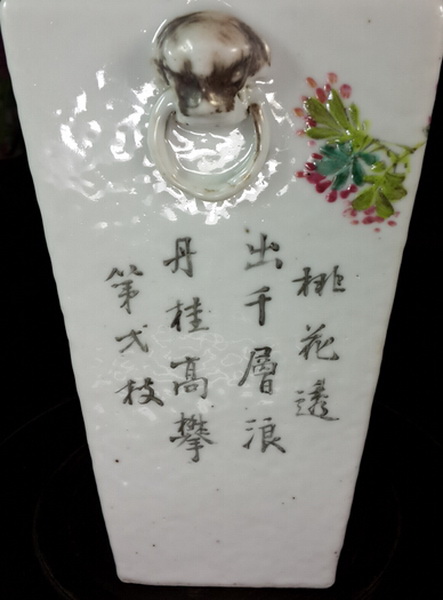 桃花透
出千層浪
丹桂高攀
第弍枝